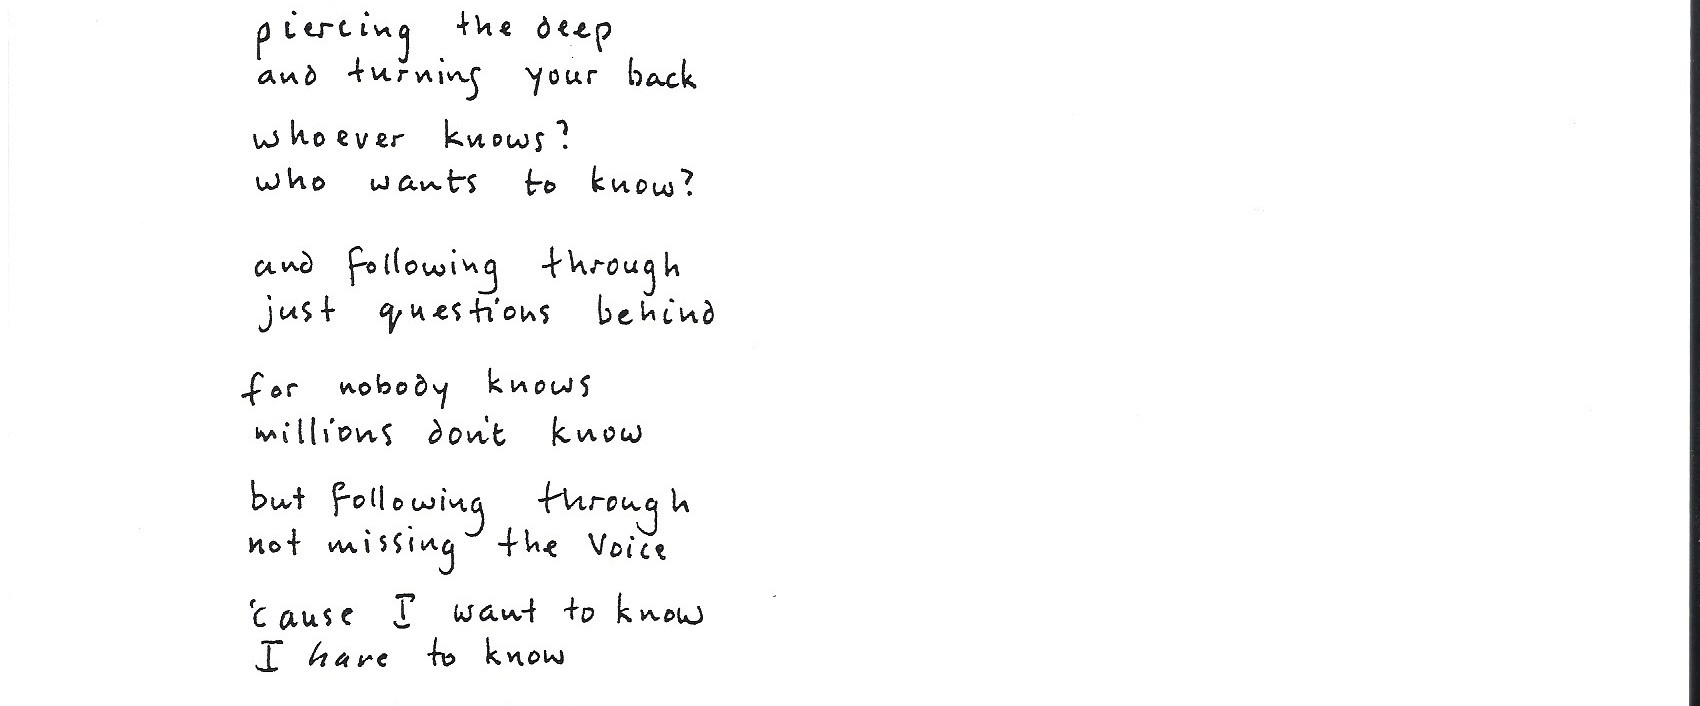 piercing the deep
and turning your back
whoever knows?
who wants to know?
and following through
just questions behind
for nobody knows
millions don't know
but following through
not missing the Voice
'cause I want to know
I have to know